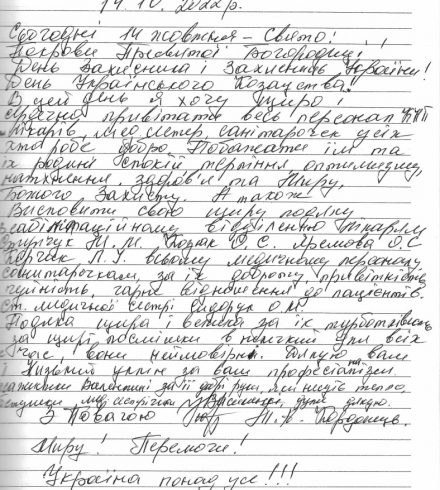 14.10.2022р.
Сьогодні 14 жовтня – Свято!
Покрови Пресвятої Богородиці!
День Захисника і Захисниць України!
День Українського Козацтва!
В цей день я хочу щиро!
сердечно привітати весь персонал
лікарів, мед. сестер, санітарочек усіх
хто робе добро. Побажати їм та
їх родині спокій терпіння оптимізму,
натхнення, здоров'я та Миру,
Божого Захисту. А також
Висловити свою щиру подяку
реабілітаційному відділенню лікарям
М. М. Козак О. С. Яремова О. С
Л. У. всьому медичному персоналу
санітарочкам, за їх доброту, привітність
чуйність, гарне відношення до пацієнтів.
ст. медичної сестрі Сидорук О. М
Подяка щира і велика за їх турботливість
за щирі посмішки в нелегкий для всіх
час, вони неймовірні. Дякую вам
і Низький уклін за ваш професіоналізм.
Валентині за її добрі руки, які несуть тепло,
дуже дякую.
З Повагою
Миру! Перемоги!
Україна понад усе!!!